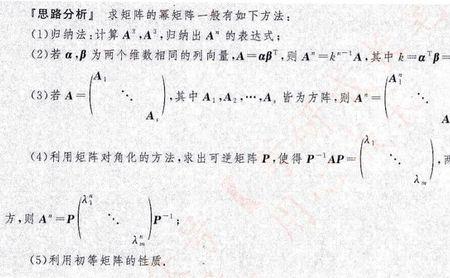 『思路分析』 求矩阵的幂矩阵一般有如下方法:
(1)归纳法:计算 A²,A³,归纳出 Aⁿ 的表达式;
(2)若 α,β 为两个维数相同的列向量,A=αβᵀ,则 Aⁿ=kⁿ⁻¹A,其中 k=αᵀβ=
(3)若 A=(A₁ ⋱ Aₛ),其中 A₁,A₂,⋯,Aₛ 皆为方阵,则 Aⁿ=(A₁ⁿ ⋱ A
(4)利用矩阵对角化的方法,求出可逆矩阵 P,使得 P⁻¹AP=(λ₁ ⋱ λₘ),两
方,则 Aⁿ=P(λ₁ⁿ ⋱ λₘⁿ)P⁻¹;
(5)利用初等矩阵的性质.